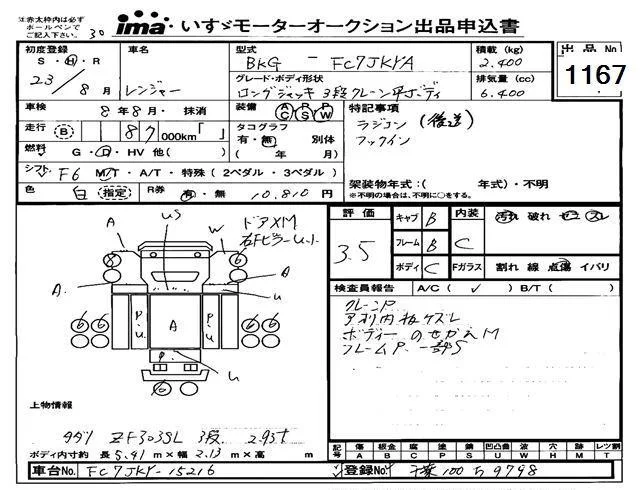 (注)赤太枠内は必ず
ボールペンで
ご記入下さい。
30
ima いすゞモーターオークション出品申込書
初度登録
S・H・R
23/8月
車名
レンジャー
型式
BKG - FC7JKYA
グレード・ボディ形状
ロングジャッキ 3段クレーン平ボディ
積載 (kg)
2.400
排気量 (cc)
6.400
出品No
1167
車検
8年8月・抹消
装備
A C P S P W
特記事項
ラジコン (後送)
フックイン
走行 (B) 187 000km「 」
タコグラフ
有・無 別体
( 年 月)
燃料
G・D・HV 他( )
シフト F6 M/T・A/T・特殊 (2ペダル・3ペダル)
架装物年式:( 年式)・不明
※不明の場合は、不明に○をする。
色 白 (指定) R券 有・無 10.810円
A
US
W
ドアXM
右Fピラーu.t
A
A
u
P.u
A
P.u
P.
u
6
6
6
6
6
6
評価
3.5
キャブ B
フレーム B
ボディ C
内装
C
汚れ 破れ セニ スレ
Fガラス 割れ 線 点傷 イバリ
検査員報告 A/C ( ✓ ) B/T ( )
クレーンP
アオリ内板ケズレ
ボディーのせかえM
フレームP. 一部S
上物情報
タダノ ZF303SL 3段 2.93t
ボディ内寸約 長 5.41 m×幅 2.13 m×高 m
記号 傷 板金 腐 塗 錆 凹凸曲 波 穴 跡 レンズ割
A B C P S U W H M T
車台No. FC7JKY-15216
登録No. 千葉 100 ち 9798